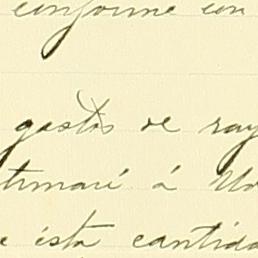 conforme con
gastos de ray
timaré á Mo
e ésta cantida